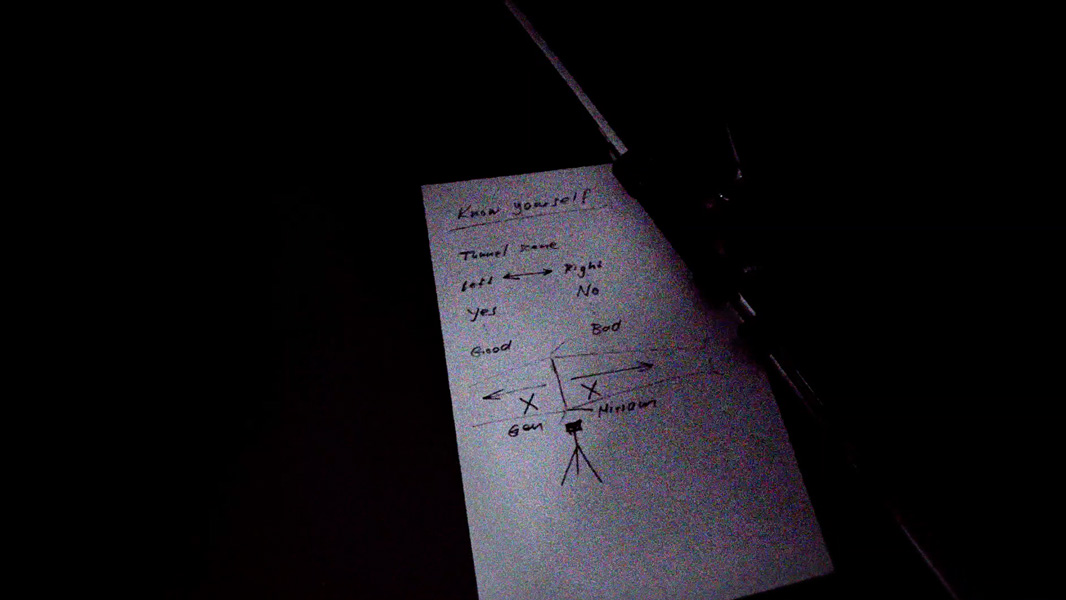 Know yourself
Tunnel zone
Left ↔ Right
Yes No
Good Bad
X X
Gon